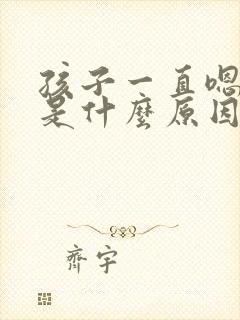 孩子一直嗯
是什麼原因
齊宇